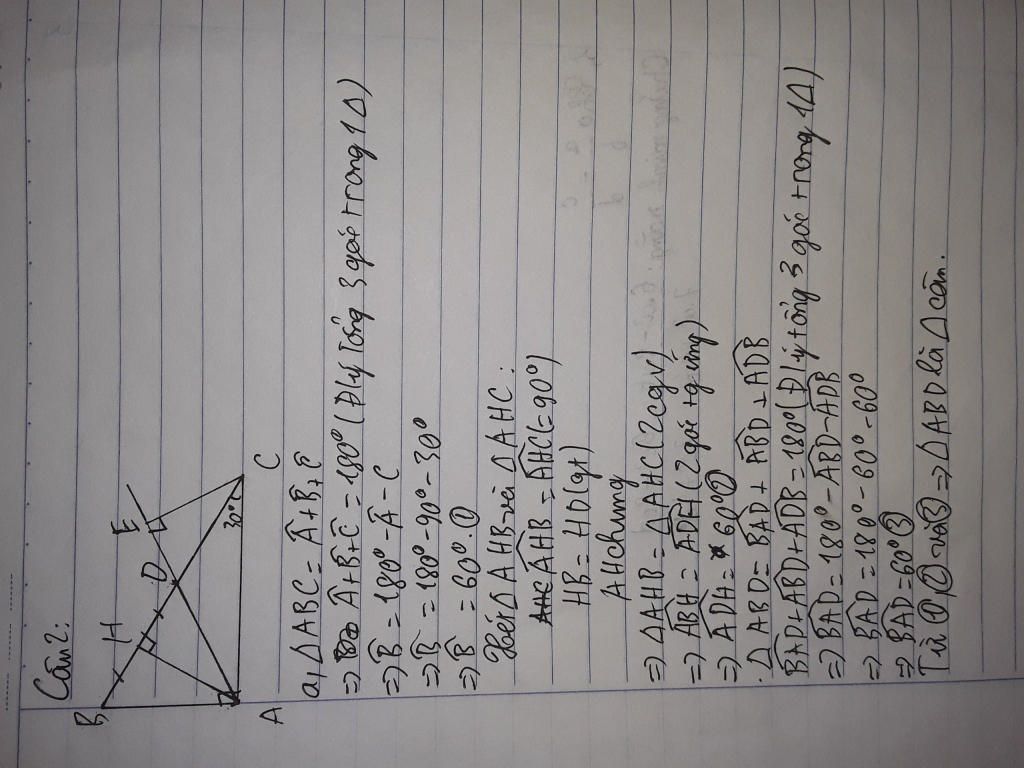 Câu 2:
B
H
D
E
30°
A
C
a, △ABC = Â + B̂ + Ĉ
=> Â + B̂ + Ĉ = 180° (Định lý tổng 3 góc trong 1△)
=> B̂ = 180° - Â - C
=> B̂ = 180° - 90° - 30°
=> B̂ = 60°. ①
Xét △AHB và △AHC:
AHB = AHC (= 90°)
HB = HD (gt)
AH chung
=> △AHB = △AHC (2cgv)
=> ABH = ADH (2 góc tg ứng)
=> ADH = 60° ②
. △ABD = BAD + ABD + ADB
BAD + ABD + ADB = 180° (Đlý tổng 3 góc trong 1△)
=> BAD = 180° - ABD - ADB
=> BAD = 180° - 60° - 60°
=> BAD = 60° ③
Từ ①, ② và ③ => △ABD là △ cân.